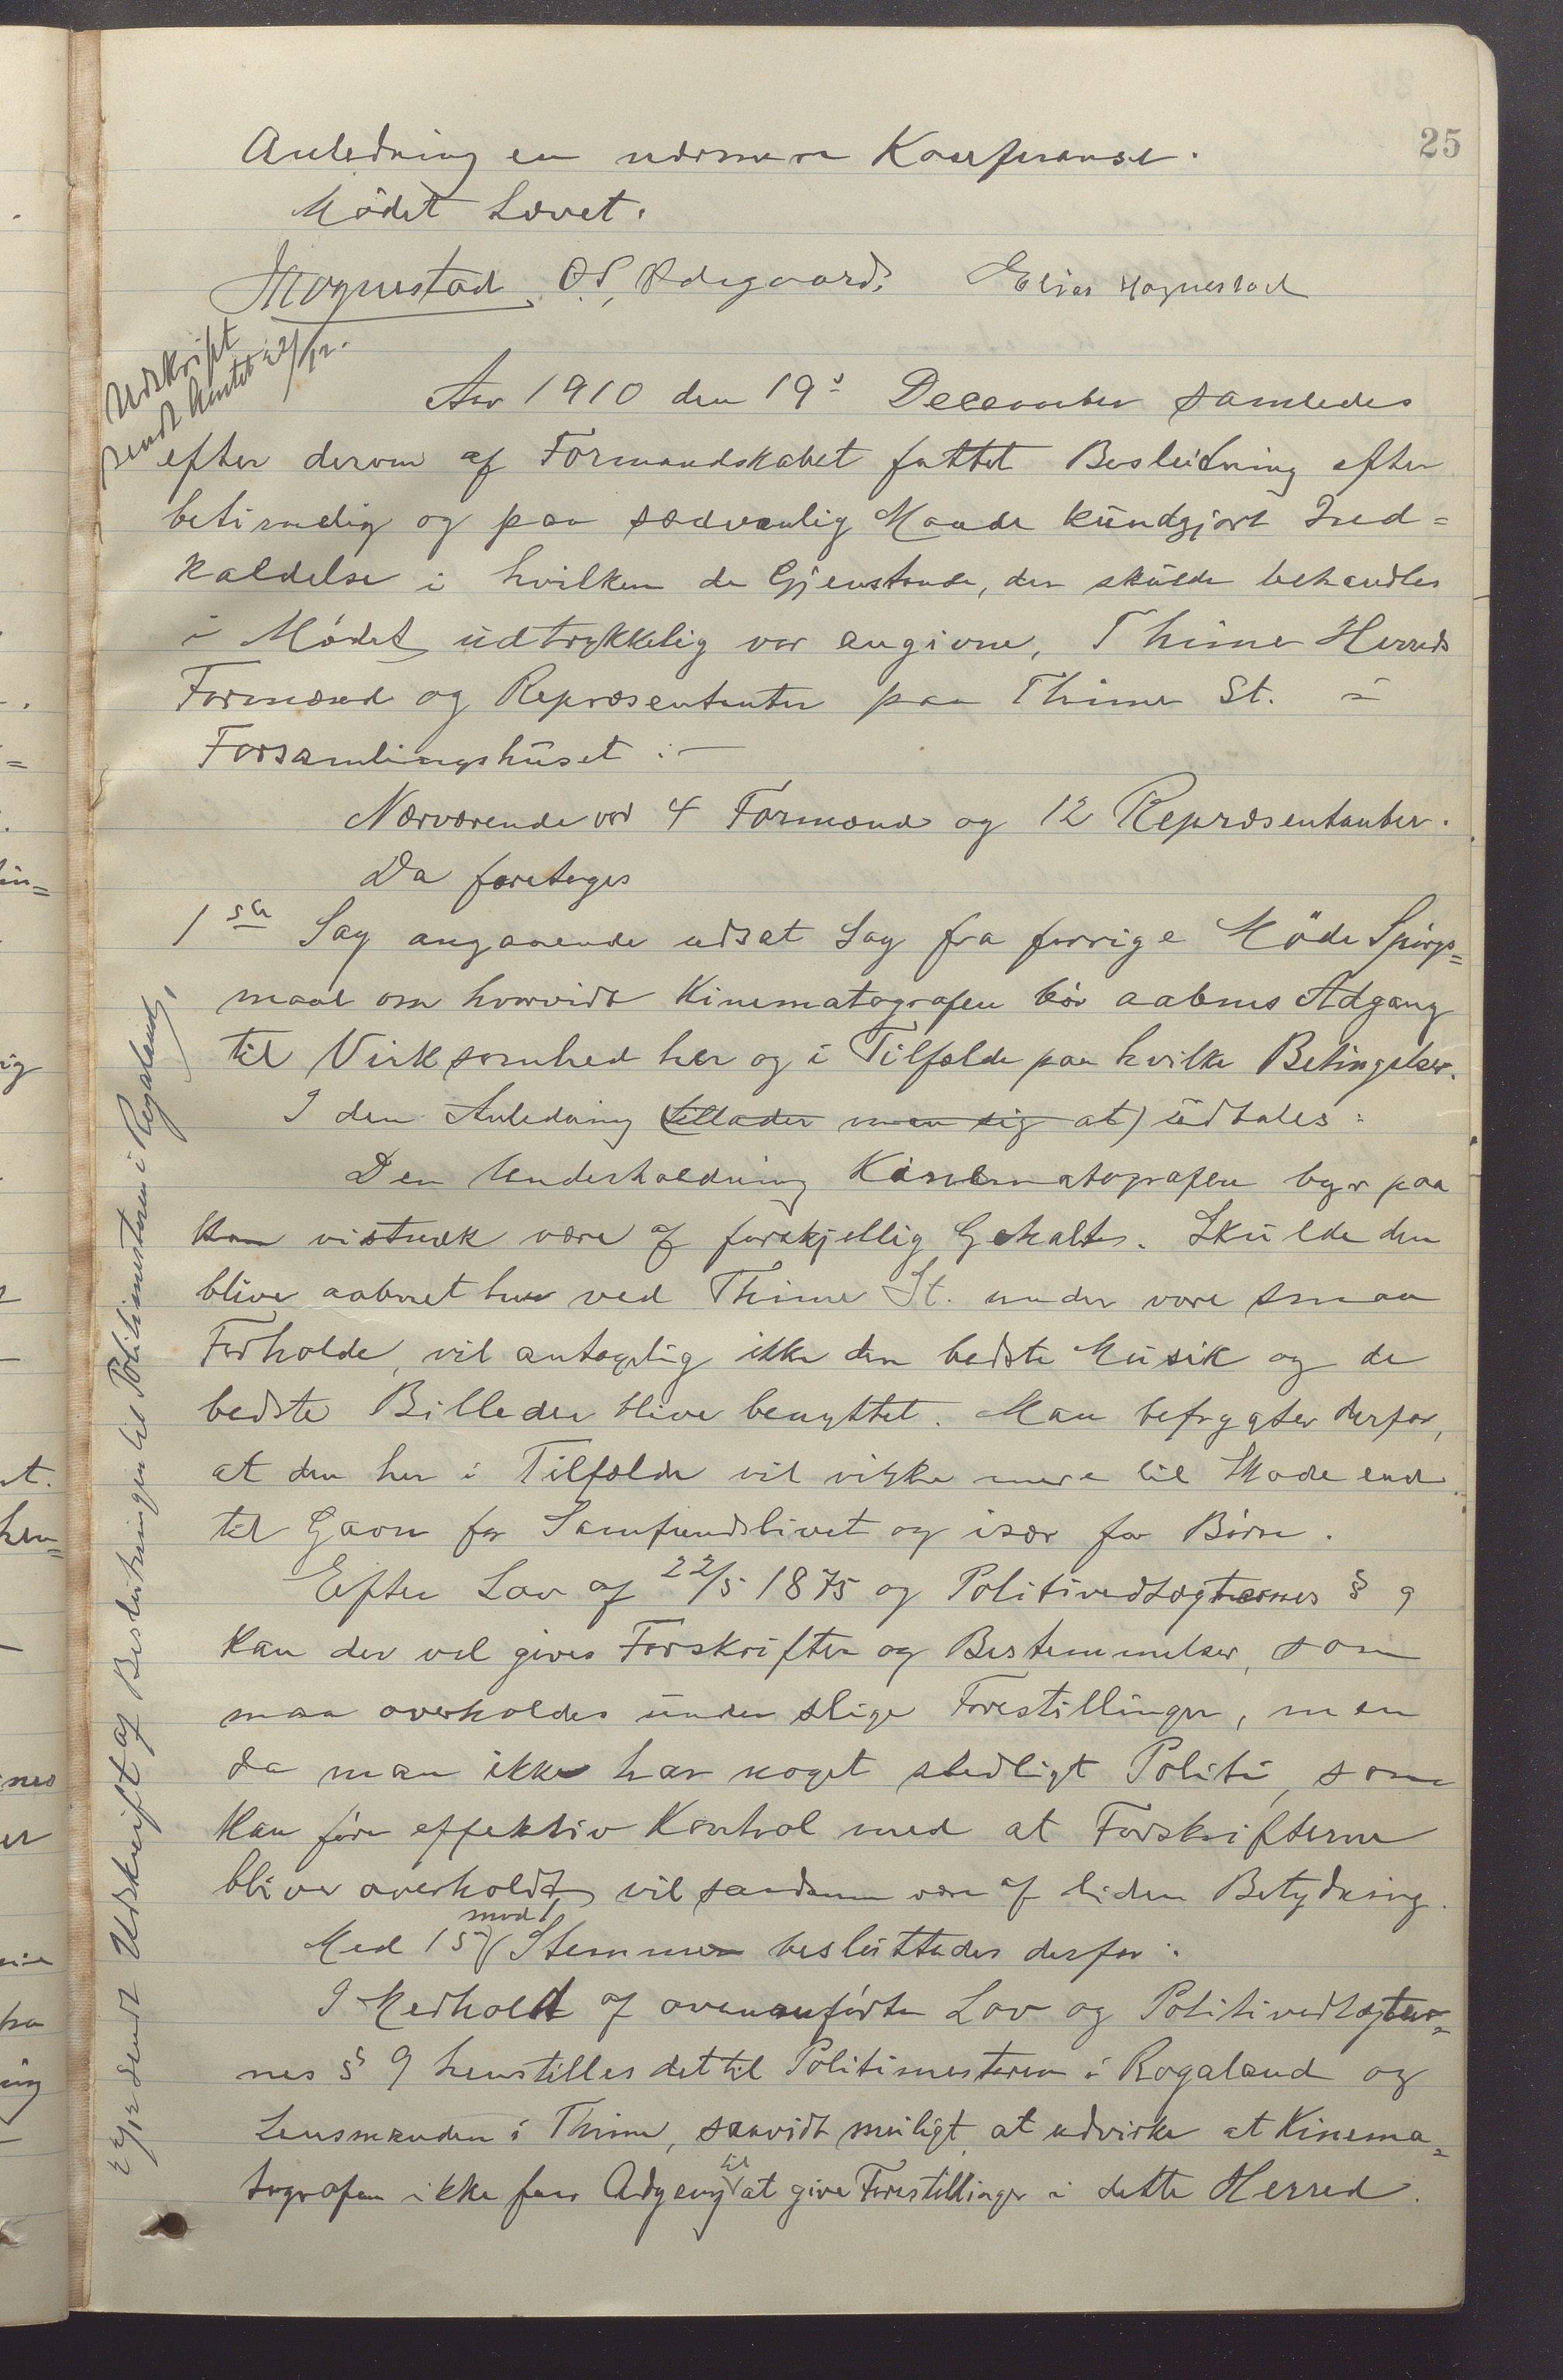 25
Anledning en nærmere Konferanse.
Mödet hævet.
Mognestad O. S. Ødegaard. Elias Hognestad
Udskrift
sendt Amtet 22/12.
Aar 1910 den 19de December samledes
efter derom af Formandskabet fattet Beslutning efter
betimelig og paa sædvanlig Maade kundgjort Ind=
kaldelse i hvilken de Gjenstande, der skulde behandles
i Mödet udtrykkelig var angivne, Thime Herreds
Formænd og Repræsentanter paa Thime St. i
Forsamlingshuset :-
Nærværende var 4 Formænd og 12 Repræsentanter.
Da foretages
1ste Sag angaaende udsat Sag fra forrige Möde Spörgs=
maal om hvorvidt Kinematografen bör aabnes Adgang
til Virksomhed her og i Tilfælde paa hvilke Betingelser.
I den Anledning (tillader man sig at) udtales:
Den Underholdning Kinematografen byr paa
kan vistnok være af forskjellig Gehalt. Skulde den
blive aabnet her ved Thime St. under vore smaa
Forholde, vil antagelig ikke den bedste Musik og de
bedste Billeder blive benyttet. Man befrygter derfor,
at den her i Tilfælde vil virke mere til Skade end
til Gavn for Samfundslivet og især for Börn.
Efter Lov af 22/5 1875 og Politivedtægternes § 9
kan der vel gives Forskrifter og Bestemmelser, som
maa overholdes under slige Forestillinger, men
da man ikke har noget stedligt Politi, som
kan före effektiv Kontrol med at Forskrifterne
bliver overholdt, vil saadanne være af liden Betydning.
Med 15 mod 1 Stemmer besluttedes derfor:
I Medhold af ovenanförte Lov og Politivedtægter=
nes § 9 henstilles det til Politimesteren i Rogaland og
Lensmanden i Thime, saavidt muligt, at udvirke at Kinema=
tografen ikke faar Adgang til at give Forestillinger i dette Herred.
Udskrift af Beslutningen til Politimesteren i Rogaland,